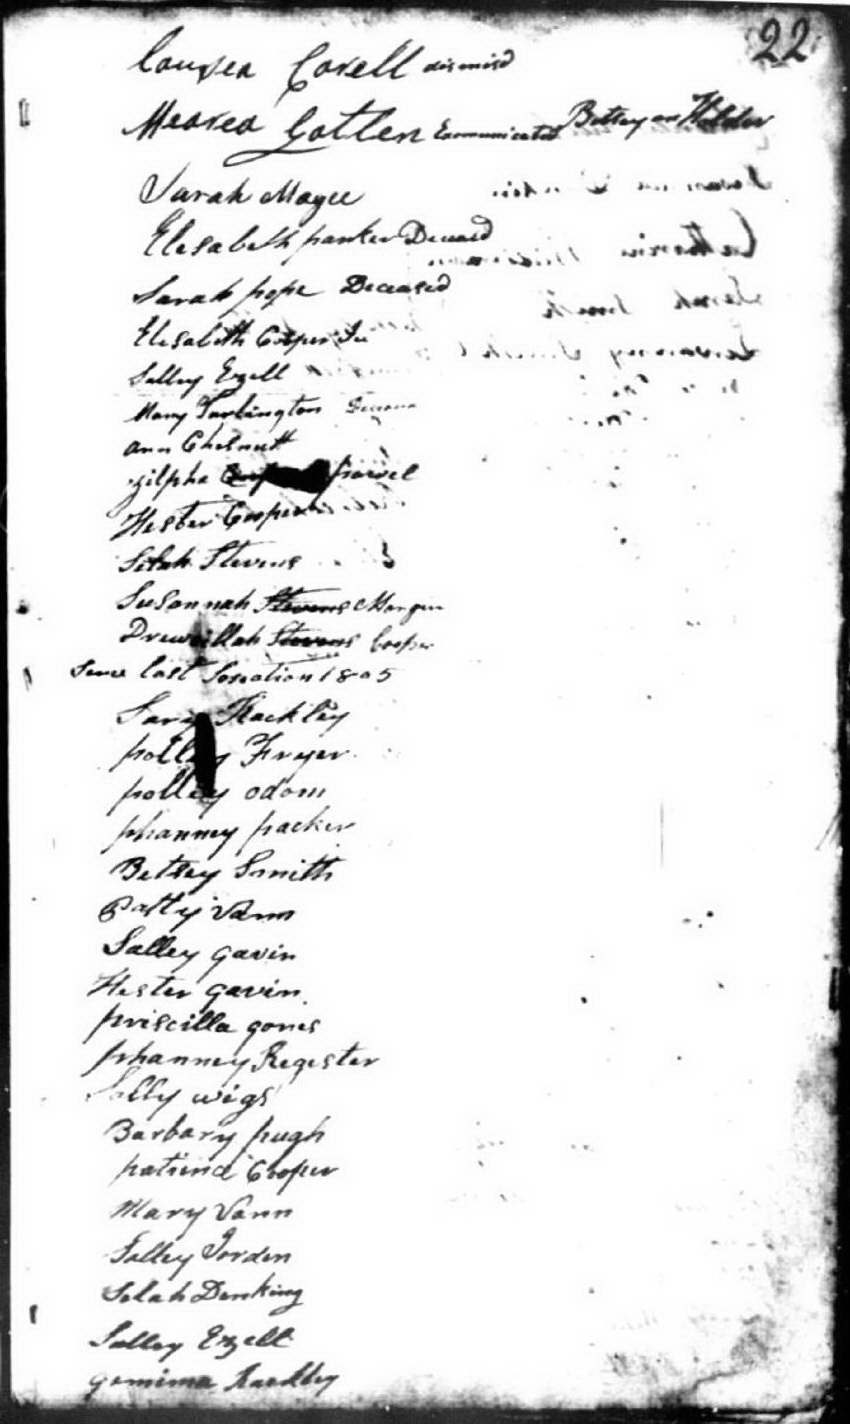 22
Covell dismisd
Gotlen Exmmunicated Betsey an Holder
Sarah Magee
Elesabeth parker Deceasd
Sarah pope Deceased
Elesabeth Cooper Ju
Salley Ezell
Mary Turlington
ann Chesnutt
zilpha powel
Hester Cooper
Selah Stevens
Susannah Stevens Morgan
Drewsillah Stevens Cooper
Sence last Sosiation 1805
Sary Rackley
polley Fryer
polley odom
phanney packer
Betsey Smith
patty vann
Salley gavin
Hester gavin
priscilla gones
phanney Regester
Sally wigs
Barbary pugh
patience Cooper
Mary Vann
Salley Jorden
Selah Denking
Salley Ezell
gemima Rackley